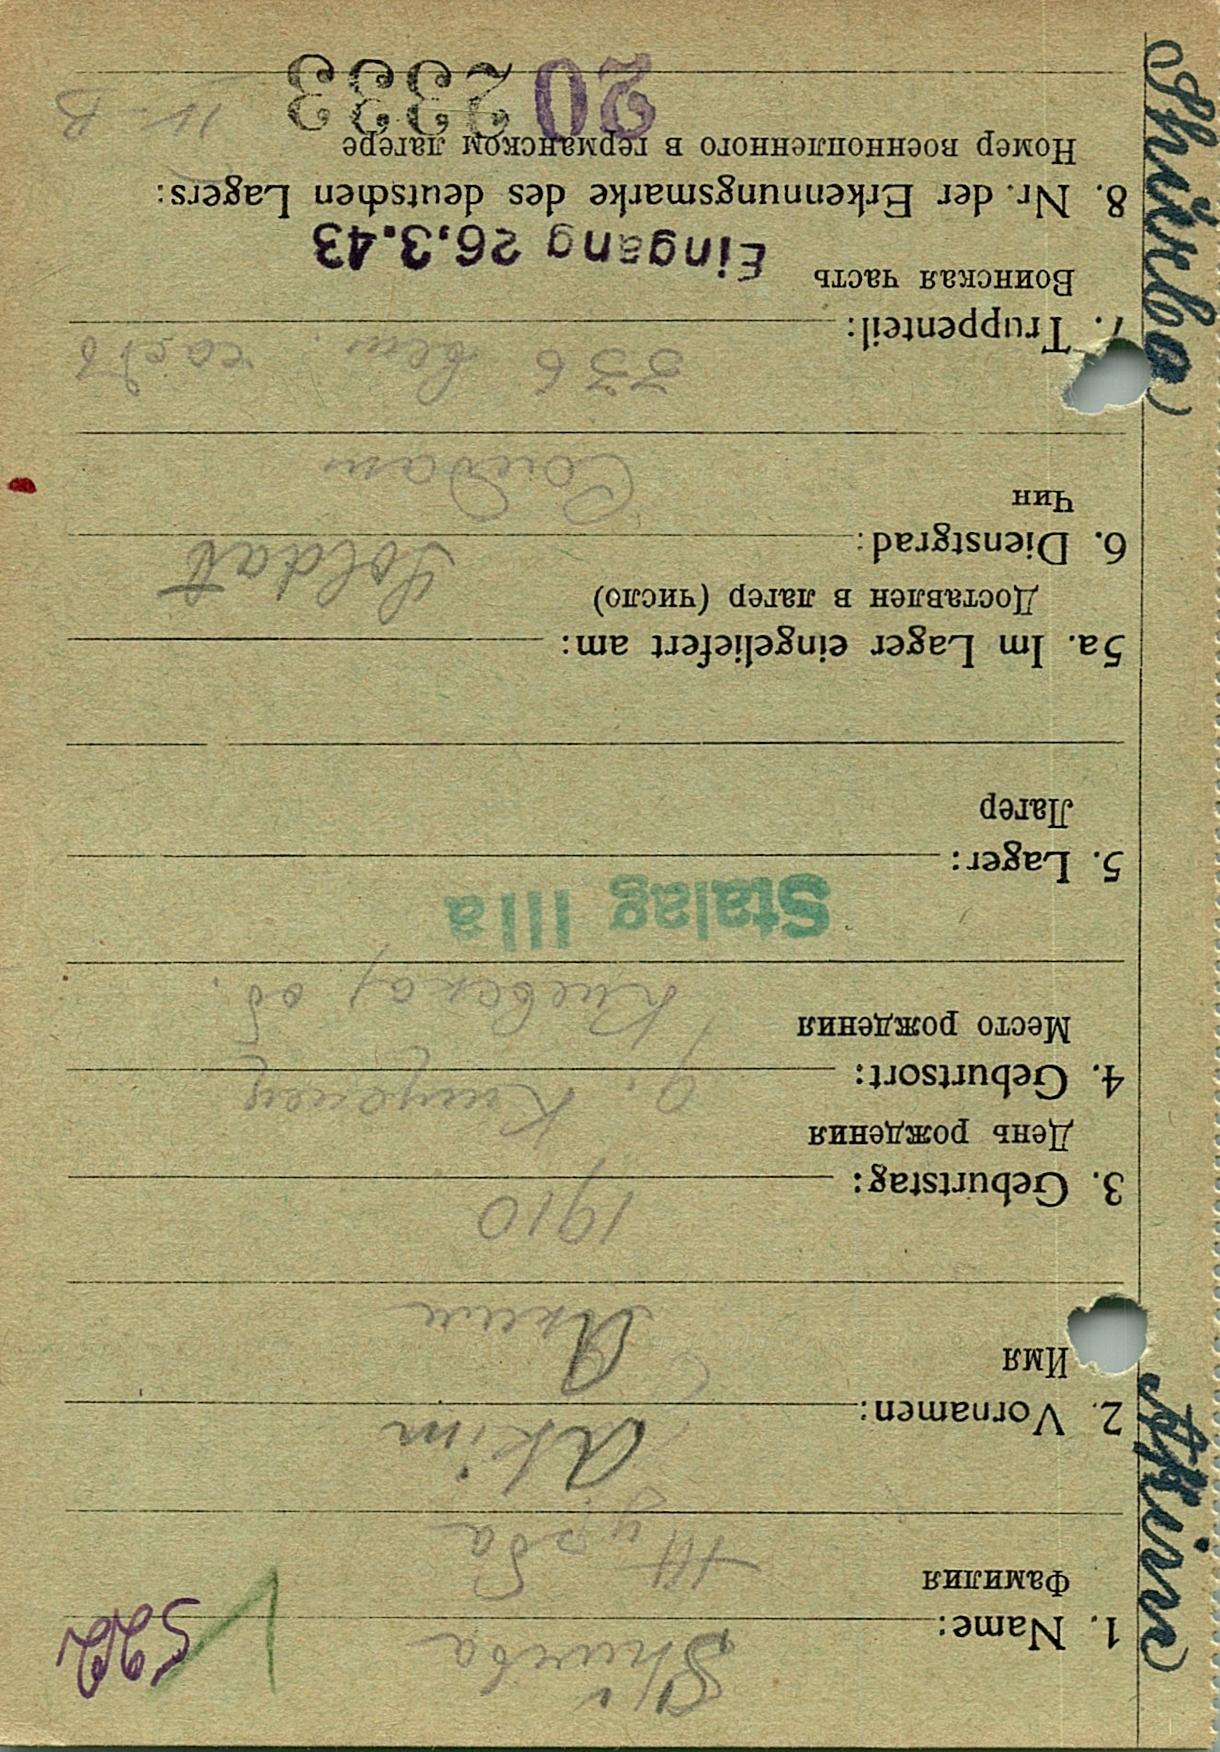 522
1. Name: Shurba
Фамилия Журба
2. Vornamen: Akim
Имя Аким
3. Geburtstag: 1910
День рождения
4. Geburtsort:
Место рождения Киевской об.
Stalag IIIa
5. Lager:
Лагер
5a. Im Lager eingeliefert am:
Доставлен в лагер (число)
6. Dienstgrad: Soldat
Чин Солдат
7. Truppenteil: 336
Воинская часть Eingang 26.3.43
8. Nr. der Erkennungsmarke des deutschen Lagers:
Номер военнопленного в германском лагере
20 2333 IV-B
Akim Shurba